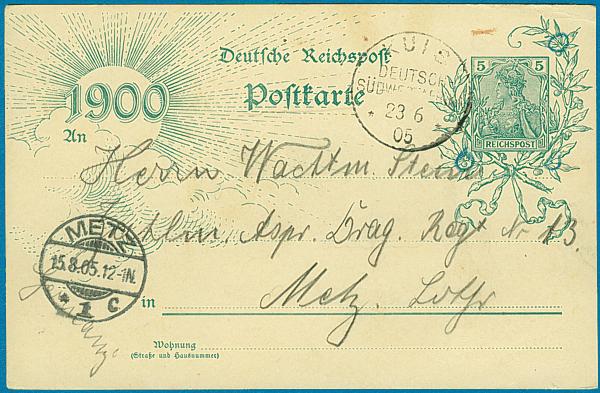 Deutsche Reichspost
1900
Postkarte
DEUTSCH
SÜDWEST
* 23 6
05
5 5
REICHSPOST
An
Herrn Wachtm
Aspr. Drag. Regt Nr 13.
METZ
15.8.05.12-1N.
* 1 c
in Metz. Lothr
Wohnung
(Straße und Hausnummer)